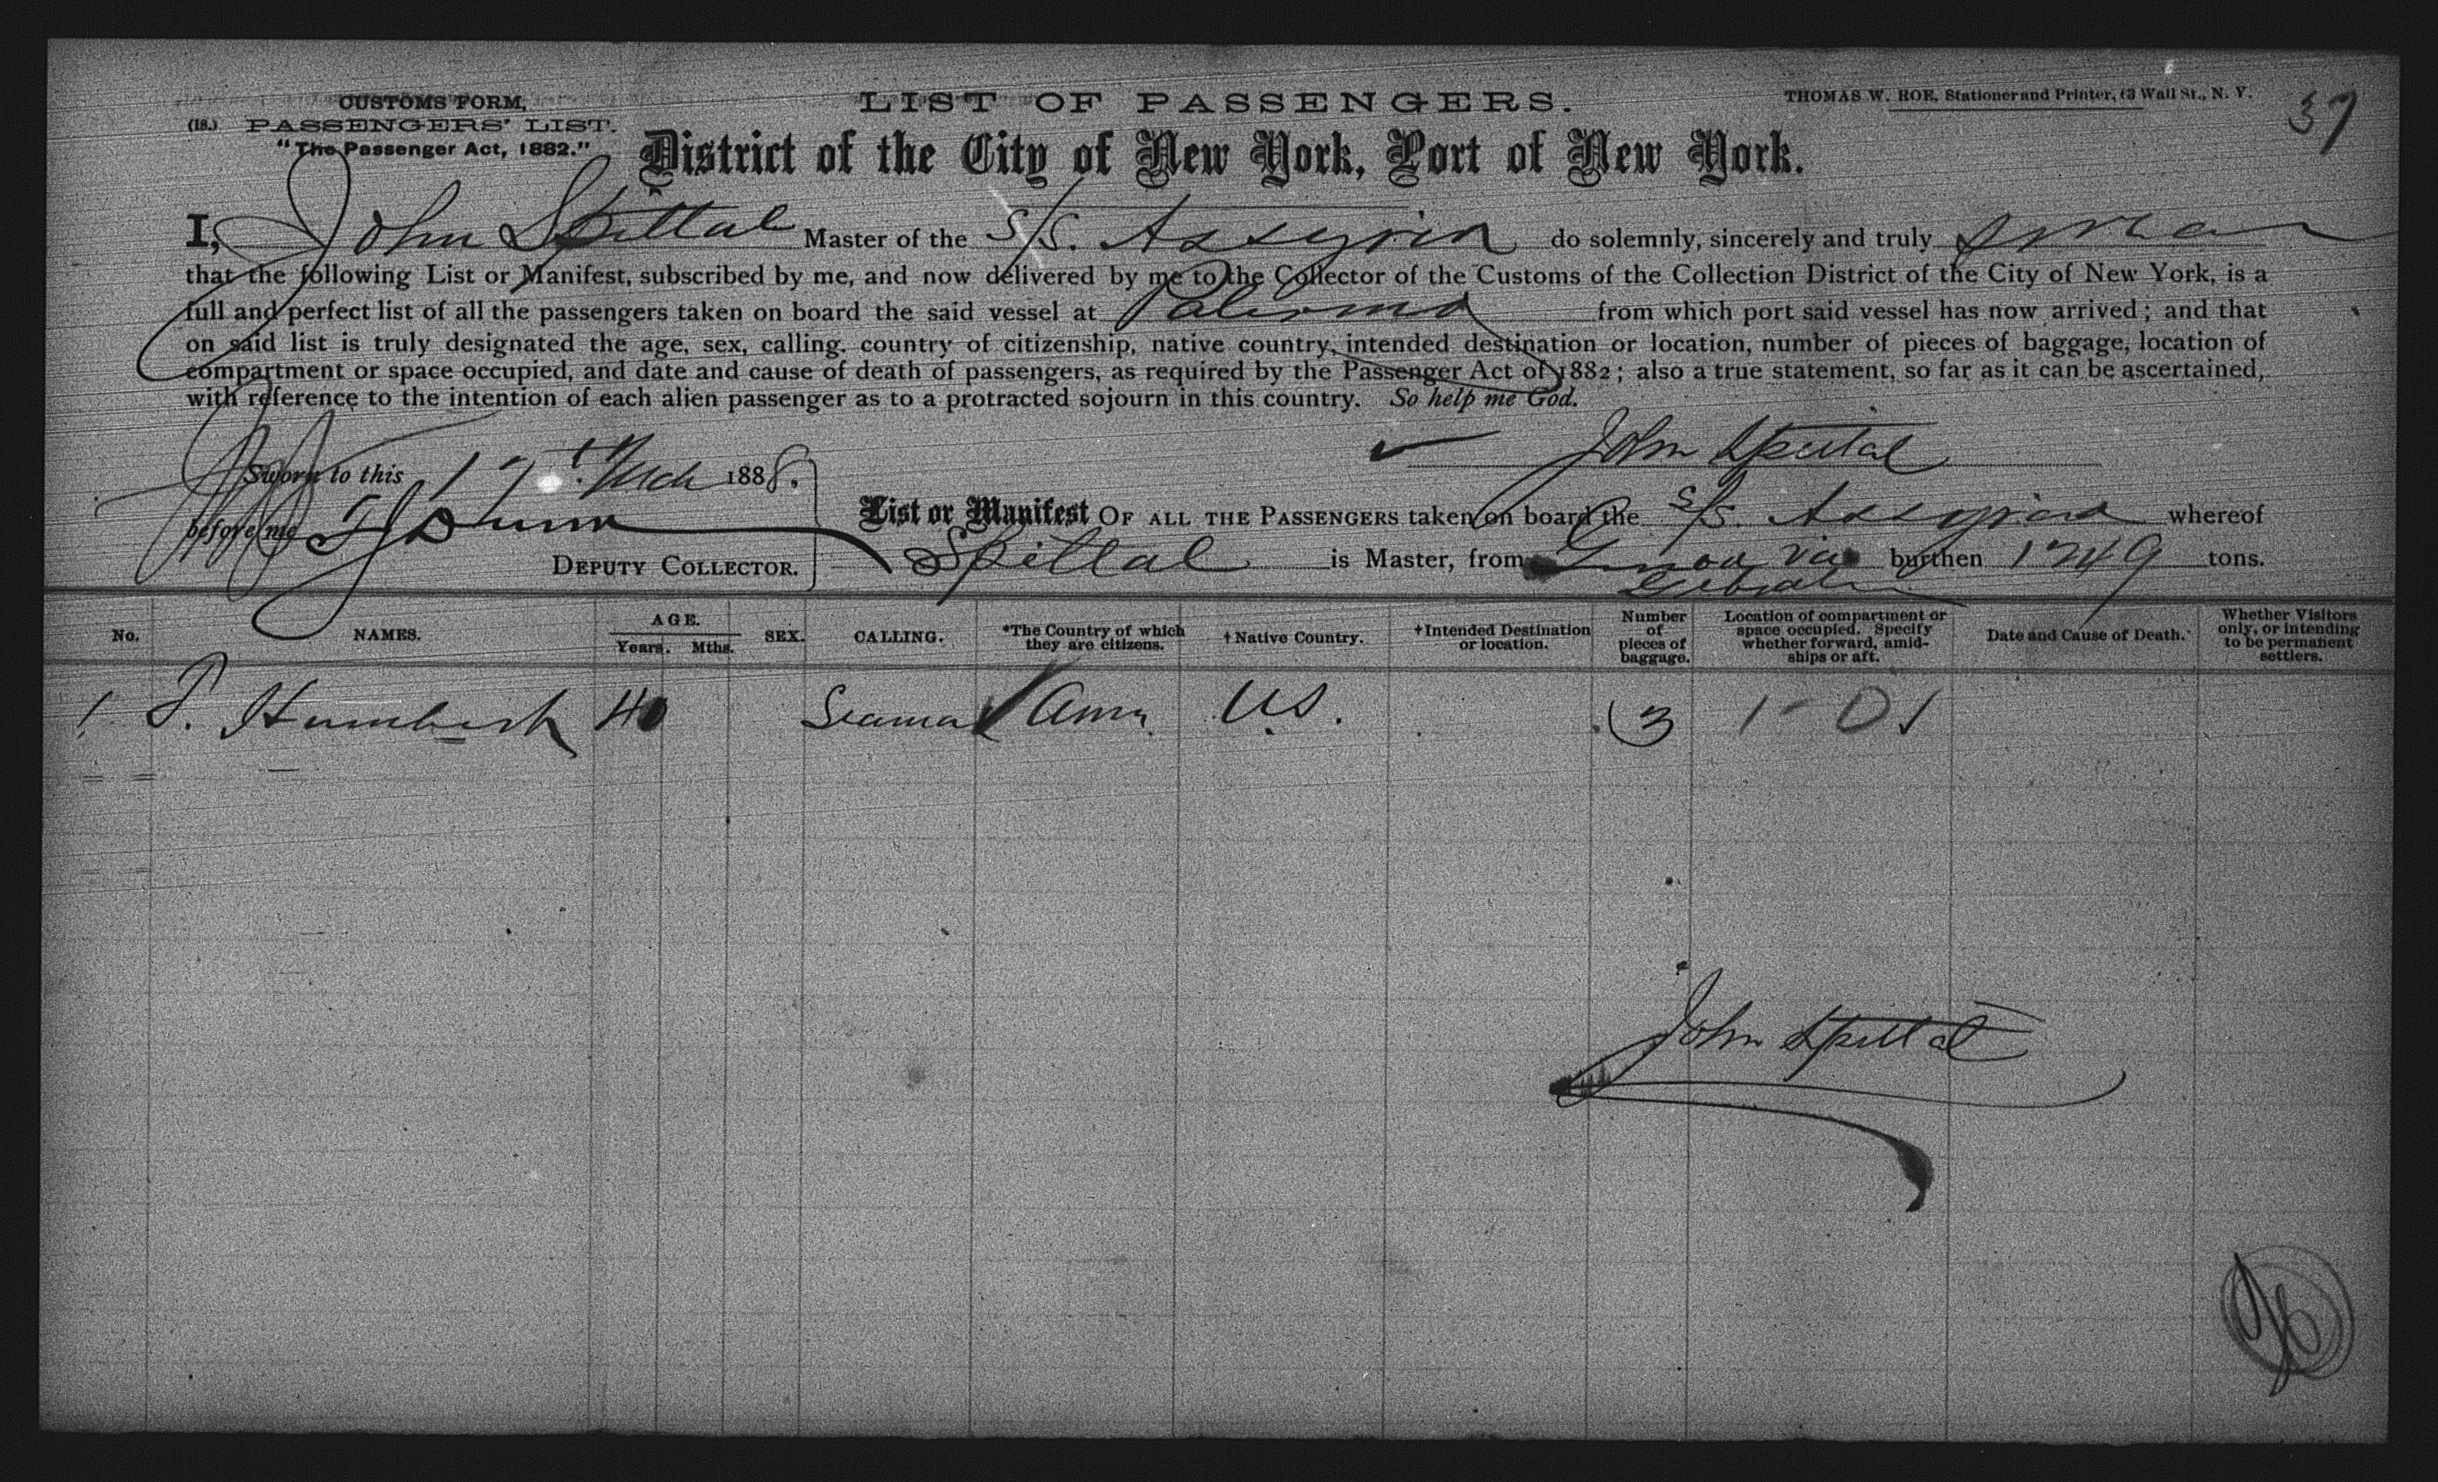 CUSTOMS FORM,
(18.) PASSENGERS' LIST.
"The Passenger Act, 1882."
LIST OF PASSENGERS.
THOMAS W. ROE, Stationer and Printer, 63 Wall St., N. Y.
37
District of the City of New York, Port of New York.
I, John Spittal Master of the S/S. Assyria do solemnly, sincerely and truly swear
that the following List or Manifest, subscribed by me, and now delivered by me to the Collector of the Customs of the Collection District of the City of New York, is a
full and perfect list of all the passengers taken on board the said vessel at Palermo from which port said vessel has now arrived; and that
on said list is truly designated the age, sex, calling, country of citizenship, native country, intended destination or location, number of pieces of baggage, location of
compartment or space occupied, and date and cause of death of passengers, as required by the Passenger Act of 1882; also a true statement, so far as it can be ascertained,
with reference to the intention of each alien passenger as to a protracted sojourn in this country. So help me God.
John Spittal
Sworn to this 17th Mch 1888.
before me Dunn
DEPUTY COLLECTOR.
List or Manifest OF ALL THE PASSENGERS taken on board the S/S. Assyria whereof
Spittal is Master, from Genoa via burthen 1749 tons.
No. NAMES. AGE. Years. Mths. SEX. CALLING. *The Country of which they are citizens. †Native Country. †Intended Destination or location. Number of pieces of baggage. Location of compartment or space occupied. Specify whether forward, amidships or aft. Date and Cause of Death. Whether Visitors only, or intending to be permanent settlers.
1 40 Seaman Amn U.S. 3
John Spittal